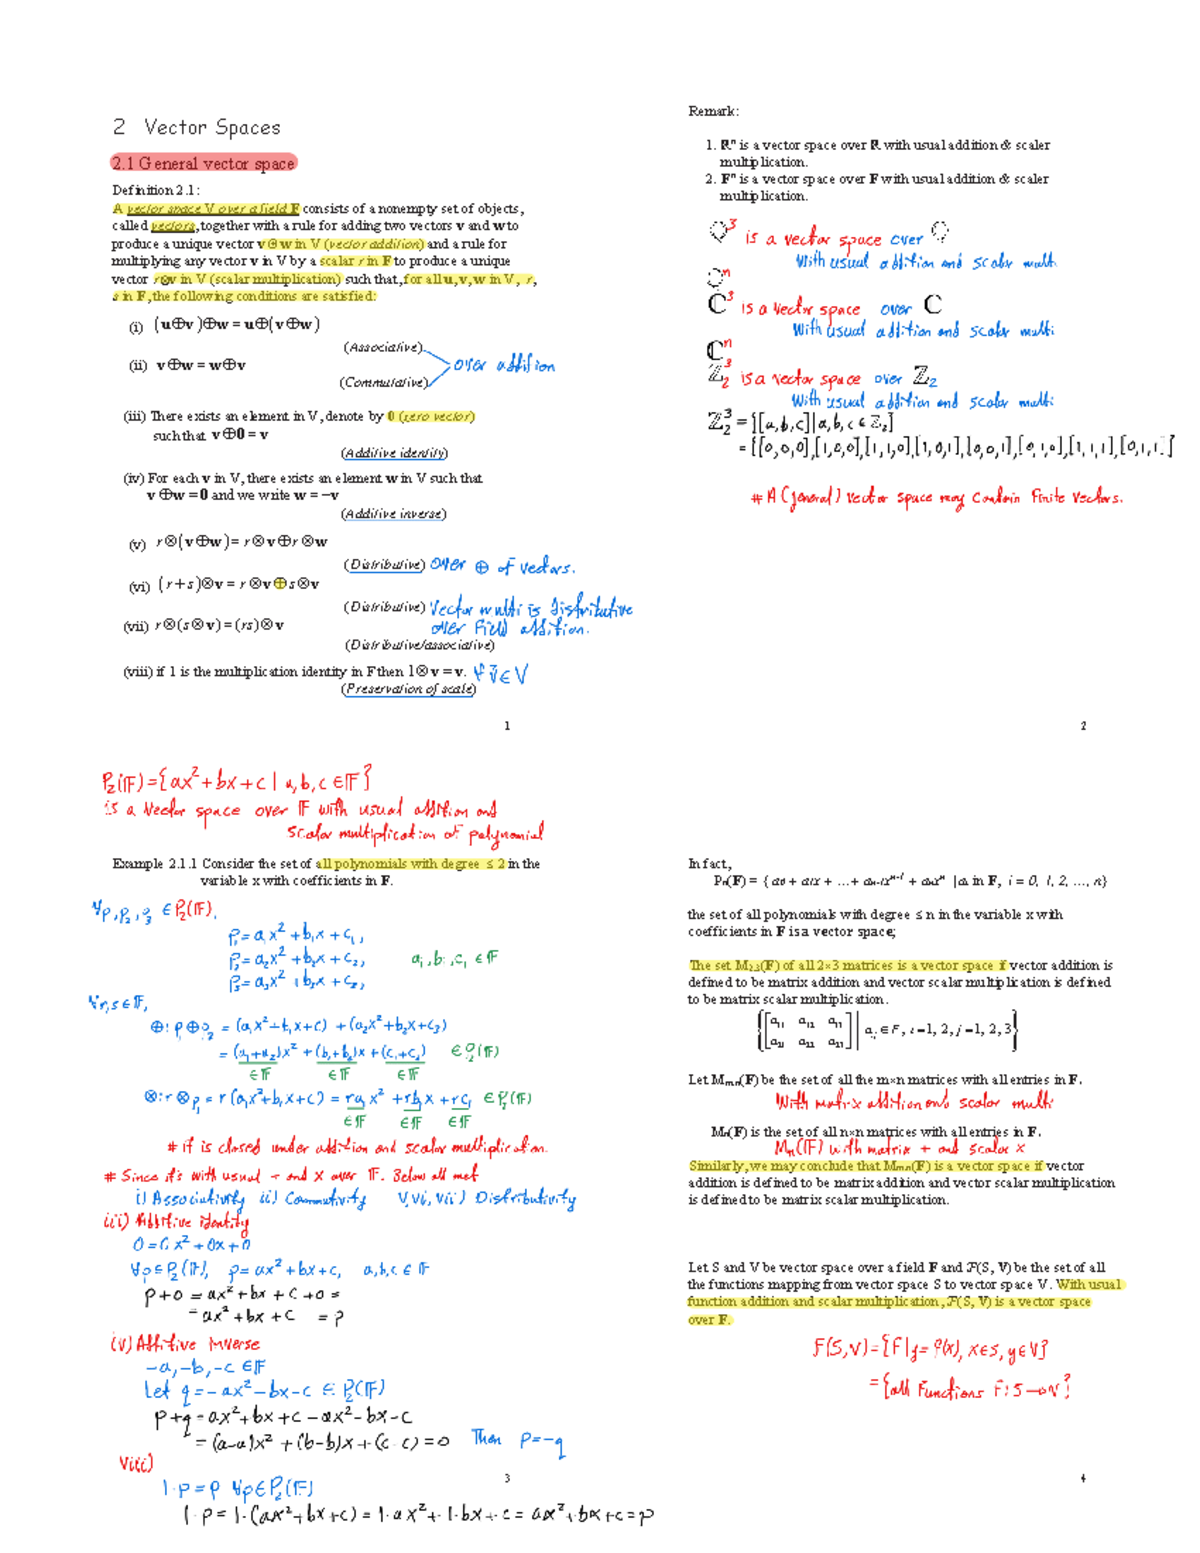 2 Vector Spaces
2.1 General vector space
Definition 2.1:
A vector space V over a field F consists of a nonempty set of objects,
called vectors, together with a rule for adding two vectors v and w to
produce a unique vector v⊕w in V (vector addition) and a rule for
multiplying any vector v in V by a scalar r in F to produce a unique
vector r⊗v in V (scalar multiplication) such that, for all u, v, w in V, r,
s in F, the following conditions are satisfied:
(i) (u⊕v)⊕w = u⊕(v⊕w)
(Associative)
(ii) v⊕w = w⊕v
over addition
(Commutative)
(iii) There exists an element in V, denote by 0 (zero vector)
such that v⊕0 = v
(Additive identity)
(iv) For each v in V, there exists an element w in V such that
v⊕w = 0 and we write w = −v
(Additive inverse)
(v) r⊗(v⊕w) = r⊗v⊕r⊗w
(Distributive) over ⊕ of vectors.
(vi) (r+s)⊗v = r⊗v⊕s⊗v
(Distributive) Vector multi is distributive
over Field addition.
(vii) r⊗(s⊗v) = (rs)⊗v
(Distributive/associative)
(viii) if 1 is the multiplication identity in F then 1⊗v = v. ∀ v̄ ∈ V
(Preservation of scale)
1
Remark:
1. Rⁿ is a vector space over R with usual addition & scaler
multiplication.
2. Fⁿ is a vector space over F with usual addition & scaler
multiplication.
is a vector space over
With usual addition and scalar mult
ℂ³ is a vector space over ℂ
With usual addition and scalar multi
ℂⁿ
ℤ₂³ is a vector space over ℤ₂
With usual addition and scalar multi
ℤ₂³ = {[a,b,c] | a,b,c ∈ ℤ₂}
= {[0,0,0],[1,0,0],[1,1,0],[1,0,1],[0,0,1],[0,1,0],[1,1,1],[0,1,1]}
# A (general) vector space may contain finite vectors.
2
P₂(𝔽) = {ax²+bx+c | a,b,c ∈ 𝔽}
is a vector space over 𝔽 with usual addition and
scalar multiplication of polynomial
Example 2.1.1 Consider the set of all polynomials with degree ≤ 2 in the
variable x with coefficients in F.
∀p₁,p₂,p₃ ∈ P₂(𝔽),
p₁ = a₁x²+b₁x+c₁,
p₂ = a₂x²+b₂x+c₂, aᵢ,bᵢ,cᵢ ∈ 𝔽
p₃ = a₃x²+b₃x+c₃,
∀r,s ∈ 𝔽,
⊕: p₁⊕p₂ = (a₁x²+b₁x+c₁)+(a₂x²+b₂x+c₂)
= (a₁+a₂)x²+(b₁+b₂)x+(c₁+c₂) ∈ P₂(𝔽)
∈𝔽 ∈𝔽 ∈𝔽
⊗: r⊗p₁ = r(a₁x²+b₁x+c₁) = ra₁x²+rb₁x+rc₁ ∈ P₂(𝔽)
∈𝔽 ∈𝔽 ∈𝔽
# it is closed under addition and scalar multiplication.
# Since it's with usual + and × over 𝔽. Below all met
i) Associativity ii) Commutivity V,Vi,Vii) Distributivity
iii) Additive identity
0 = 0x²+0x+0
∀p ∈ P₂(𝔽), p = ax²+bx+c, a,b,c ∈ 𝔽
p+0 = ax²+bx+c+0 =
= ax²+bx+c = p
(v) Additive Inverse
−a,−b,−c ∈ 𝔽
Let q = −ax²−bx−c ∈ P₂(𝔽)
p+q = ax²+bx+c−ax²−bx−c
= (a−a)x²+(b−b)x+(c−c) = 0 Then p = −q
Viii)
1·p = p ∀p ∈ P₂(𝔽)
1·p = 1·(ax²+bx+c) = 1·ax²+1·bx+c = ax²+bx+c = p
3
In fact,
Pₙ(F) = { a₀ + a₁x + …+ aₙ₋₁xⁿ⁻¹ + aₙxⁿ | aᵢ in F, i = 0, 1, 2, …, n}
the set of all polynomials with degree ≤ n in the variable x with
coefficients in F is a vector space;
The set M₂,₃(F) of all 2×3 matrices is a vector space if vector addition is
defined to be matrix addition and vector scalar multiplication is defined
to be matrix scalar multiplication.
{[a₁₁ a₁₂ a₁₃
a₂₁ a₂₂ a₂₃] | aᵢⱼ ∈ F, i=1, 2, j=1, 2, 3}
Let Mₘ,ₙ(F) be the set of all the m×n matrices with all entries in F.
With matrix addition and scalar multi
Mₙ(F) is the set of all n×n matrices with all entries in F.
Mₙ(𝔽) with matrix + and scalar ×
Similarly, we may conclude that Mₘ,ₙ(F) is a vector space if vector
addition is defined to be matrix addition and vector scalar multiplication
is defined to be matrix scalar multiplication.
Let S and V be vector space over a field F and ℱ(S, V) be the set of all
the functions mapping from vector space S to vector space V. With usual
function addition and scalar multiplication, ℱ(S, V) is a vector space
over F.
F(S,V) = {F | y = f(x), x∈S, y∈V}
= {all Functions F: S→V}
4